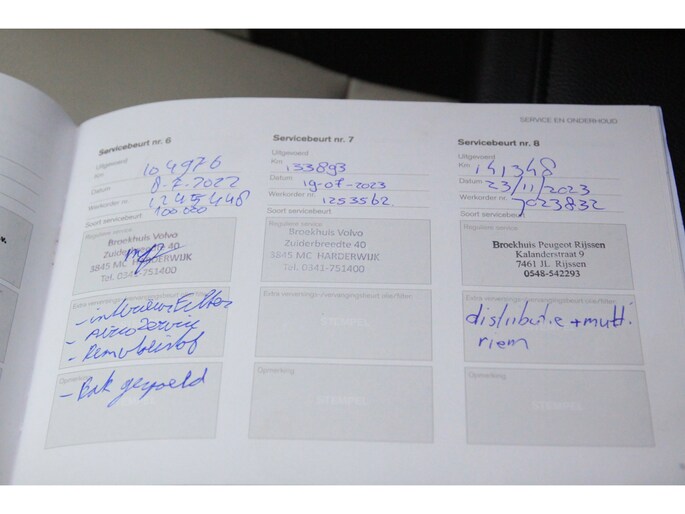 SERVICE EN ONDERHOUD
Servicebeurt nr. 6
Uitgevoerd
Km 104976
Datum 8-7-2022
Werkorder nr. 1245448
100.000
Soort servicebeurt
Reguliere service
Broekhuis Volvo
Zuiderbreedte 40
3845 MC HARDERWIJK
Tel. 0341-751400
- interieurfilter
- Airco Service
- Remvloeistof
Opmerking
- Bak gespoeld
Servicebeurt nr. 7
Uitgevoerd
Km 133893
Datum 19-07-2023
Werkorder nr. 1253562
Soort servicebeurt
Reguliere service
Broekhuis Volvo
Zuiderbreedte 40
3845 MC HARDERWIJK
Tel. 0341-751400
Opmerking
STEMPEL
Servicebeurt nr. 8
Uitgevoerd
Km 141348
Datum 23/11/2023
Werkorder nr. 7023832
Soort servicebeurt
Reguliere service
Broekhuis Peugeot Rijssen
Kalanderstraat 9
7461 JL Rijssen
0548-542293
distributie + multi
riem
Opmerking
STEMPEL